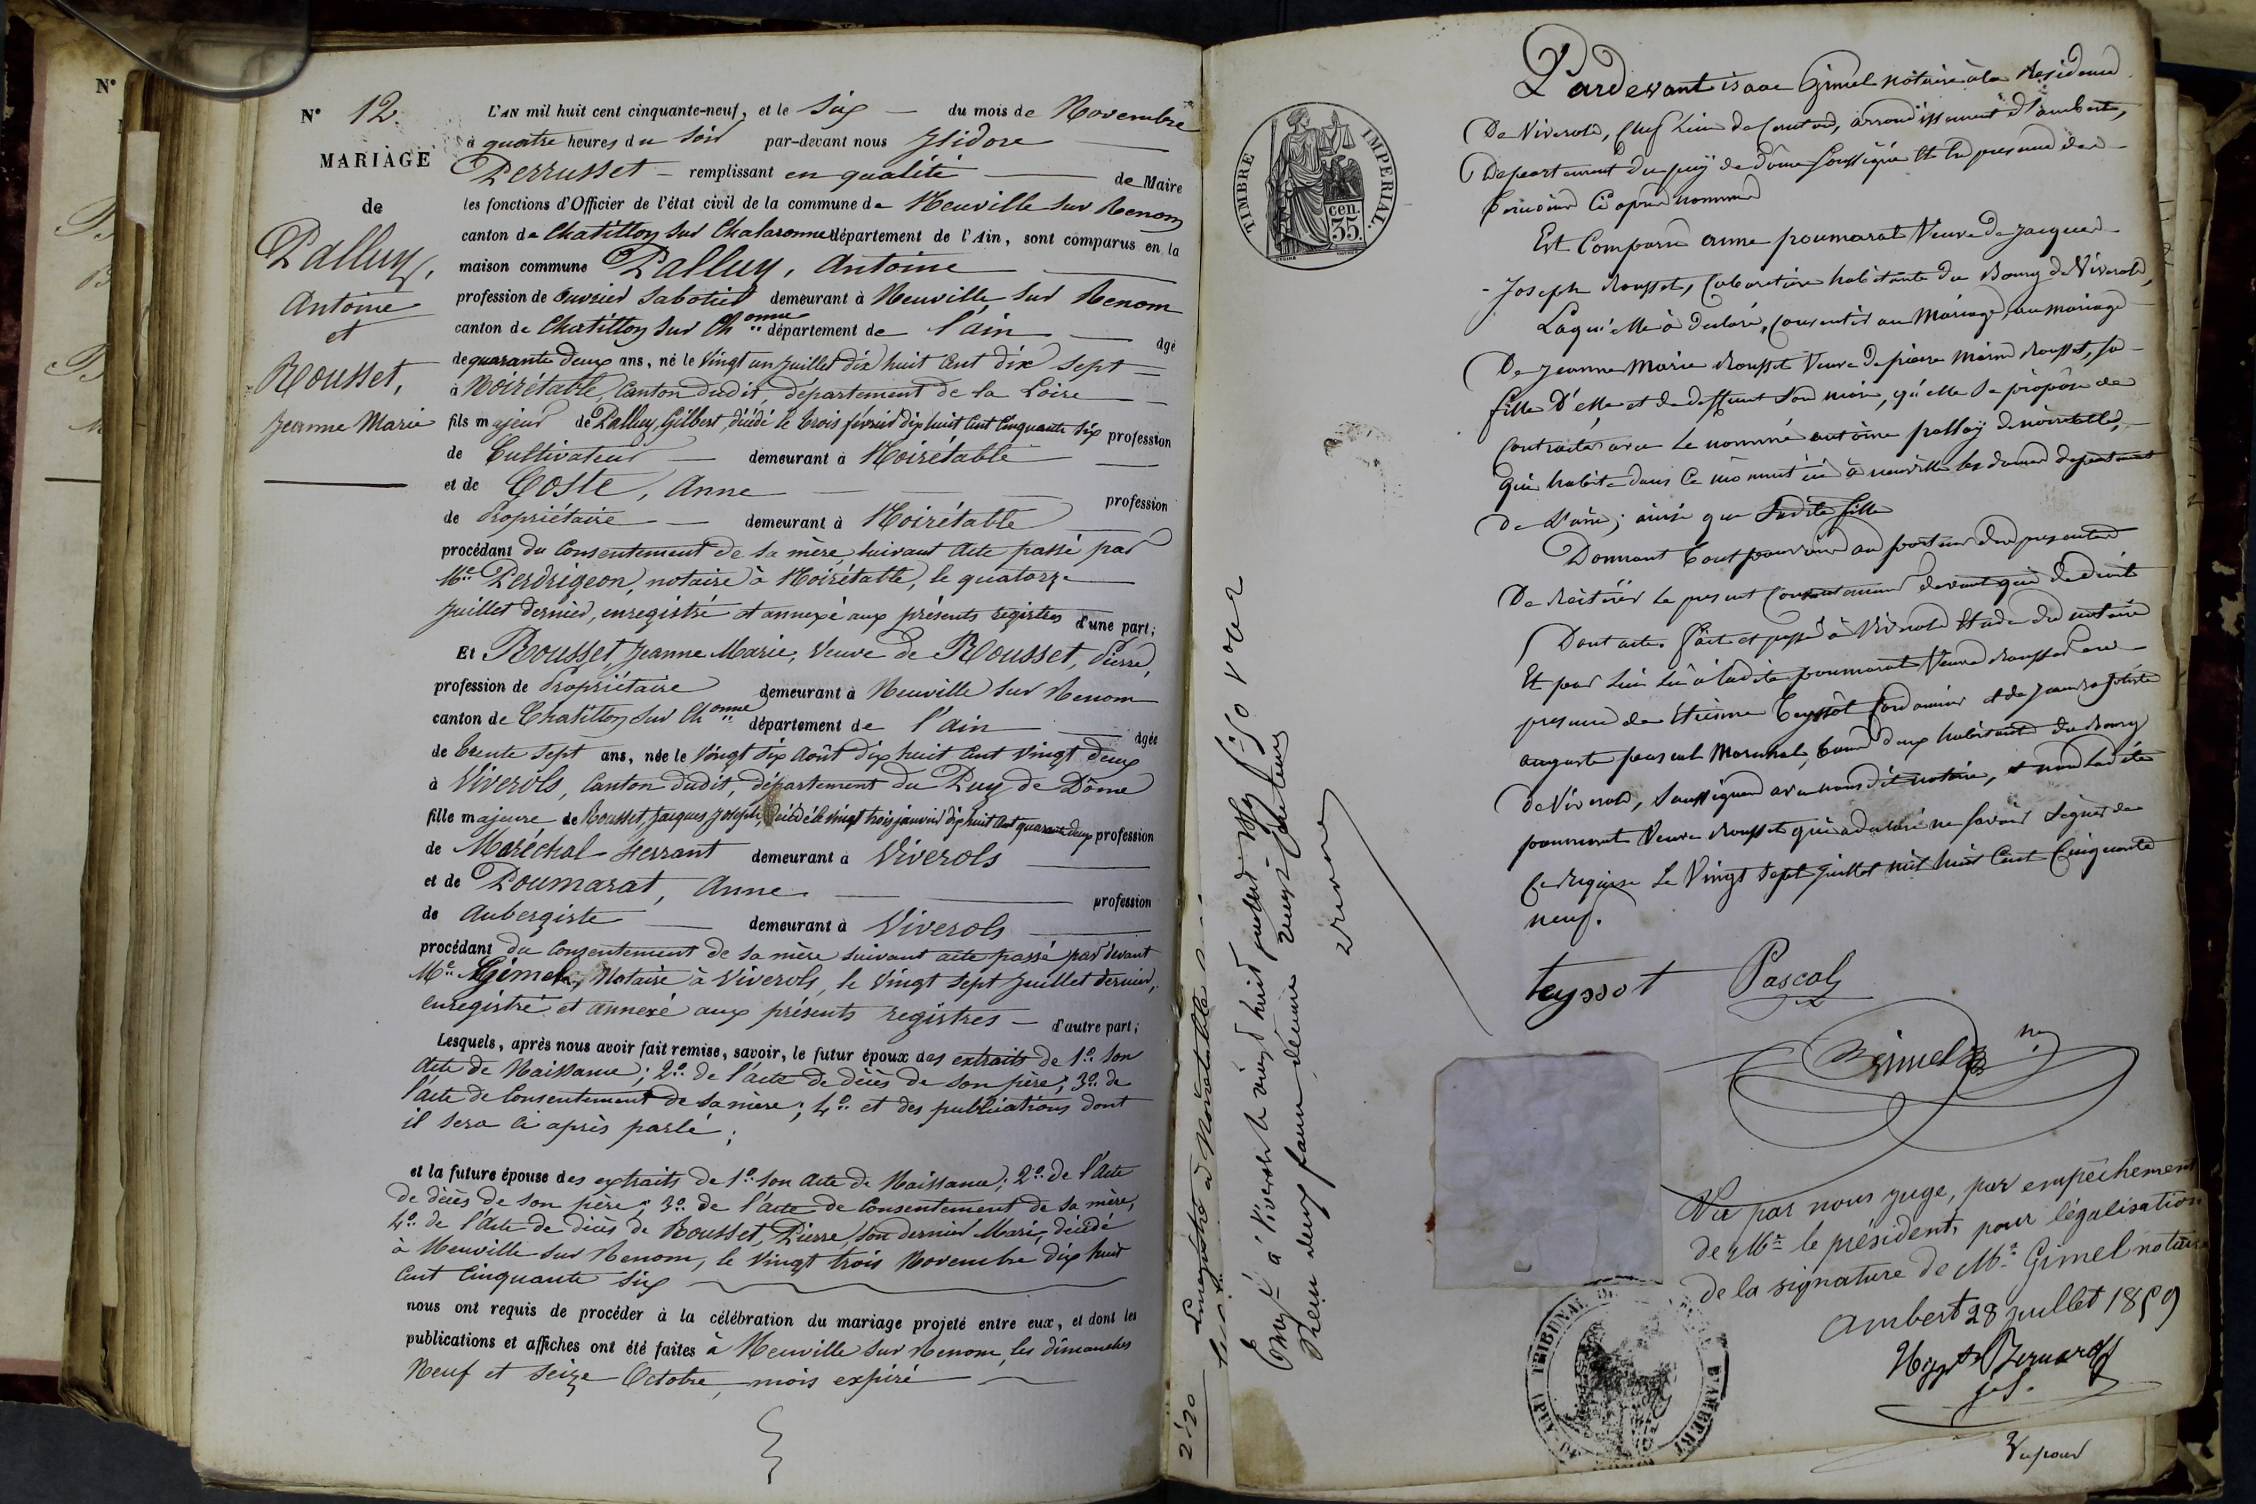 N° 12.
MARIAGE
de
Palluy,
Antoine
et
Rousset,
Jeanne Marie
L'AN mil huit cent cinquante-neuf, et le Six — du mois de Novembre
à quatre heures du Soir par-devant nous Isidore
Perrusset — remplissant en qualité — de Maire
les fonctions d'Officier de l'état civil de la commune de Neuville sur Renom
canton de Chatillon sur Chalaronne département de l'Ain, sont comparus en la
maison commune Palluy, Antoine
profession de ouvrier Sabotier demeurant à Neuville sur Renom
canton de Chatillon sur Ch.onne département de l'ain — âgé
de quarante deux ans, né le Vingt un Juillet dix huit cent dix sept —
à Noirétable, Canton dudit, département de la Loire —
fils majeur de Palluy, Gilbert, décédé le trois février dix huit cent cinquante six profession
de Cultivateur — demeurant à Noirétable —
et de Coste, Anne — profession
de Propriétaire — demeurant à Noirétable
procédant du Consentement de sa mère, suivant acte passé par
Me Perdrigeon, notaire à Noirétable, le quatorze
Juillet dernier, enregistré et annexé aux présents registres d'une part;
Et Rousset, Jeanne Marie, Veuve de Rousset, Pierre,
profession de Propriétaire demeurant à Neuville sur Renom
canton de Chatillon sur Ch.onne département de l'ain — âgée
de trente sept ans, née le Vingt dix Août dix huit cent vingt deux
à Viverols, Canton dudit, département du Puy de Dôme
fille majeure de Rousset, Jacques Joseph, décédé le vingt trois janvier dix huit cent quarante deux profession
de Maréchal-ferrant demeurant à Viverols —
et de Poumarat, Anne — profession
de Aubergiste — demeurant à Viverols
procédant du consentement de sa mère suivant acte passé par devant
Me Gimel, Notaire à Viverols, le vingt sept Juillet dernier,
enregistré et annexé aux présents registres — d'autre part;
Lesquels, après nous avoir fait remise, savoir, le futur époux des extraits de 1° Son
Acte de Naissance; 2° de l'acte de décès de son père; 3° de
l'acte de Consentement de sa mère; 4° et des publications dont
il sera ci après parlé;
et la future épouse des extraits de 1° son Acte de Naissance; 2° de l'Acte
de décès de son père; 3° de l'acte de Consentement de sa mère;
4° de l'Acte de décès de Rousset, Pierre, son dernier Mari, décédé
à Neuville sur Renom, le Vingt trois Novembre dix huit
cent Cinquante Six
nous ont requis de procéder à la célébration du mariage projeté entre eux, et dont les
publications et affiches ont été faites à Neuville sur Renom, les dimanches
Neuf et Seize Octobre, mois expiré
TIMBRE IMPERIAL.
35 cen.
Pardevant isaac Gimel notaire à la Residence
De Viverols, Chef Lieu de Canton, arrondissement d'ambert,
Departement du puy de dôme soussigné Et En presence des
temoins Ci après nommés
Est Comparue anne poumarat Veuve de Jacques
Joseph Rousset, Cabaretière habitante du Bourg de Viverols,
Laquelle à declaré, Consentir au Mariage, au mariage
De Jeanne Marie Rousset Veuve de pierre Rousset, sa
fille D'elle et de deffunt son mari, qu'elle se propose de
Contracter avec Le nommé antoine palluy de noiretable,
qui habite dans Ce moment à neuville les dames departement
De L'ain; ainsi que Sadite fille
Donnant tout pouvoir au porteur des presentes
De Reiterer Le present Consentement devant qui de droit
Dont acte. fait et passé à Viverols Etude du notaire
Et par lui lu à Ladite poumarat Veuve Rousset en
presence de Etienne Teyssot Cordonnier et de Jean Baptiste
auguste pascal Marechal, tous deux habitants du Bourg
de Viverols, soussignés avec nous dit notaire, et non Ladite
poumarat Veuve Rousset qui a declaré ne savoir signer de
Ce requise Le Vingt Sept Juillet mil huit Cent Cinquante
neuf.
teyssot Pascal
Gimel
Vu par nous juge, par empêchement
de Mr le président, pour légalisation
de la signature de Me Gimel notaire
Ambert 28 juillet 1859
D'AMBERT
Vu pour
Enregistré à Noirétable
2/20
Enr.é à Viverols le vingt huit juillet 1859
Reçu deux francs décime vingt centimes